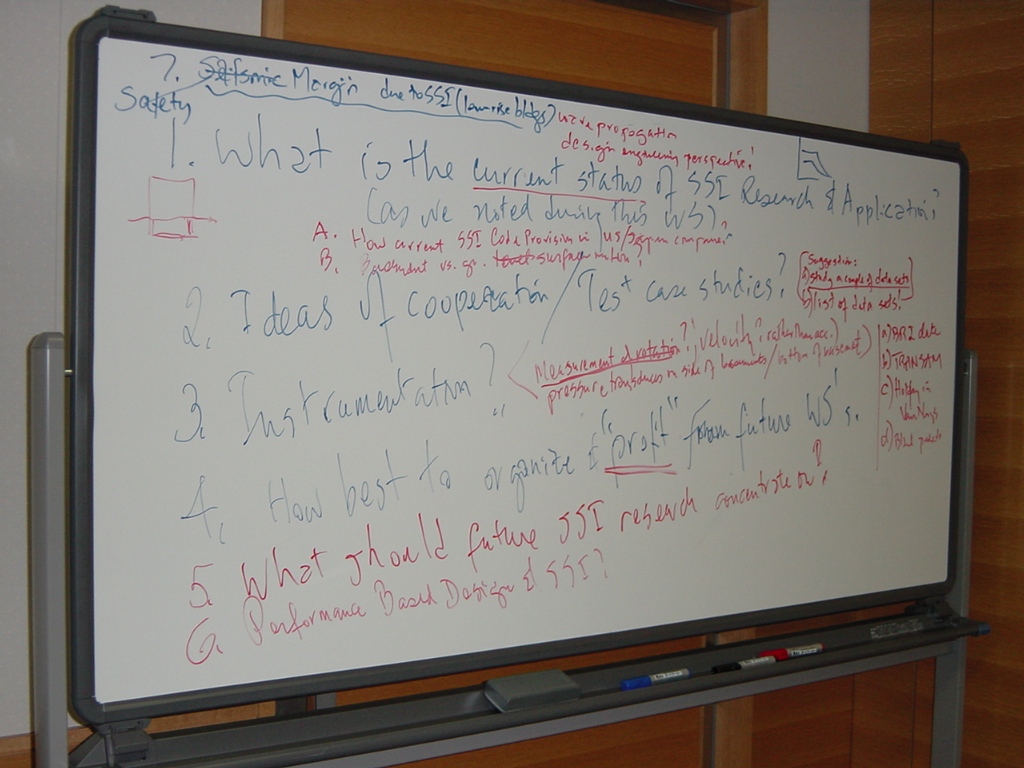 7. Seismic Margin due to SSI (low rise bldgs)
Safety
wave propagation
design engineering perspective!
1. What is the current status of SSI Research & Application?
(as we noted during this WS).
A. How current SSI Code Provision in US/Japan compare?
B. Basement vs. gr. surface motion?
2. Ideas of cooperation / Test case studies?
Suggestion:
a) study a couple of data sets
b) list of data sets!
a) BRI data
b) TRANSAM
c) Holiday in
Van Nuys
d)
3. Instrumentation?
Measurement of rotation?! velocity? (rather than acc.)
pressure transducers on side of basements/bottom of basemat
4. How best to organize & "profit" from future WS's.
5. What should future SSI research concentrate on?
6. Performance Based Design & SSI?